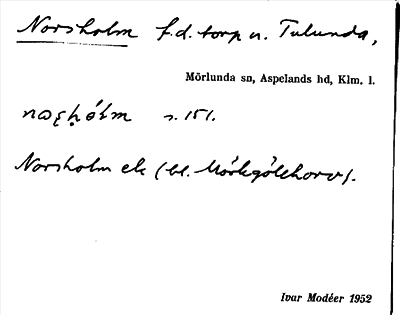 Norsholm f.d. torp u. Tulunda,
Mörlunda sn, Aspelands hd, Klm. l.
s. 151.
Norsholm ek (bl.
Ivar Modéer 1952